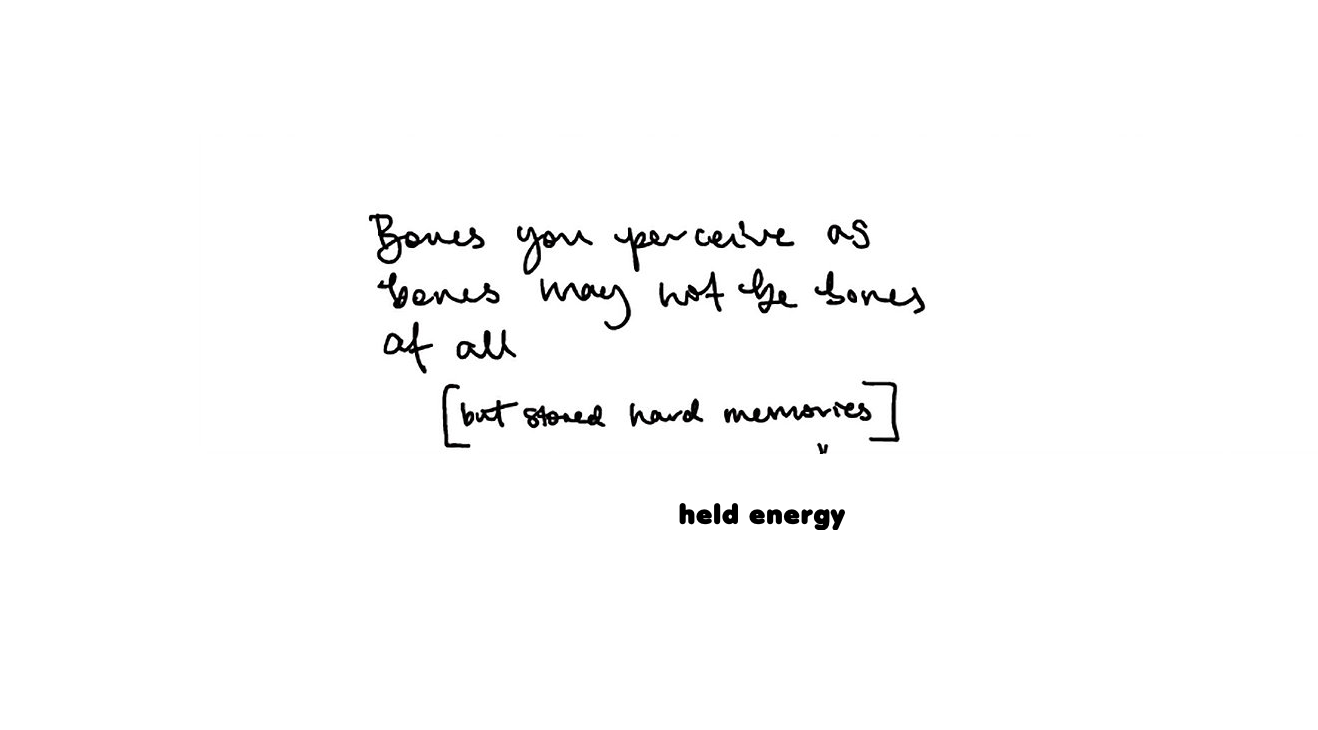 Bones you perceive as
bones may not be bones
at all
[but stored hard memories]
v
held energy